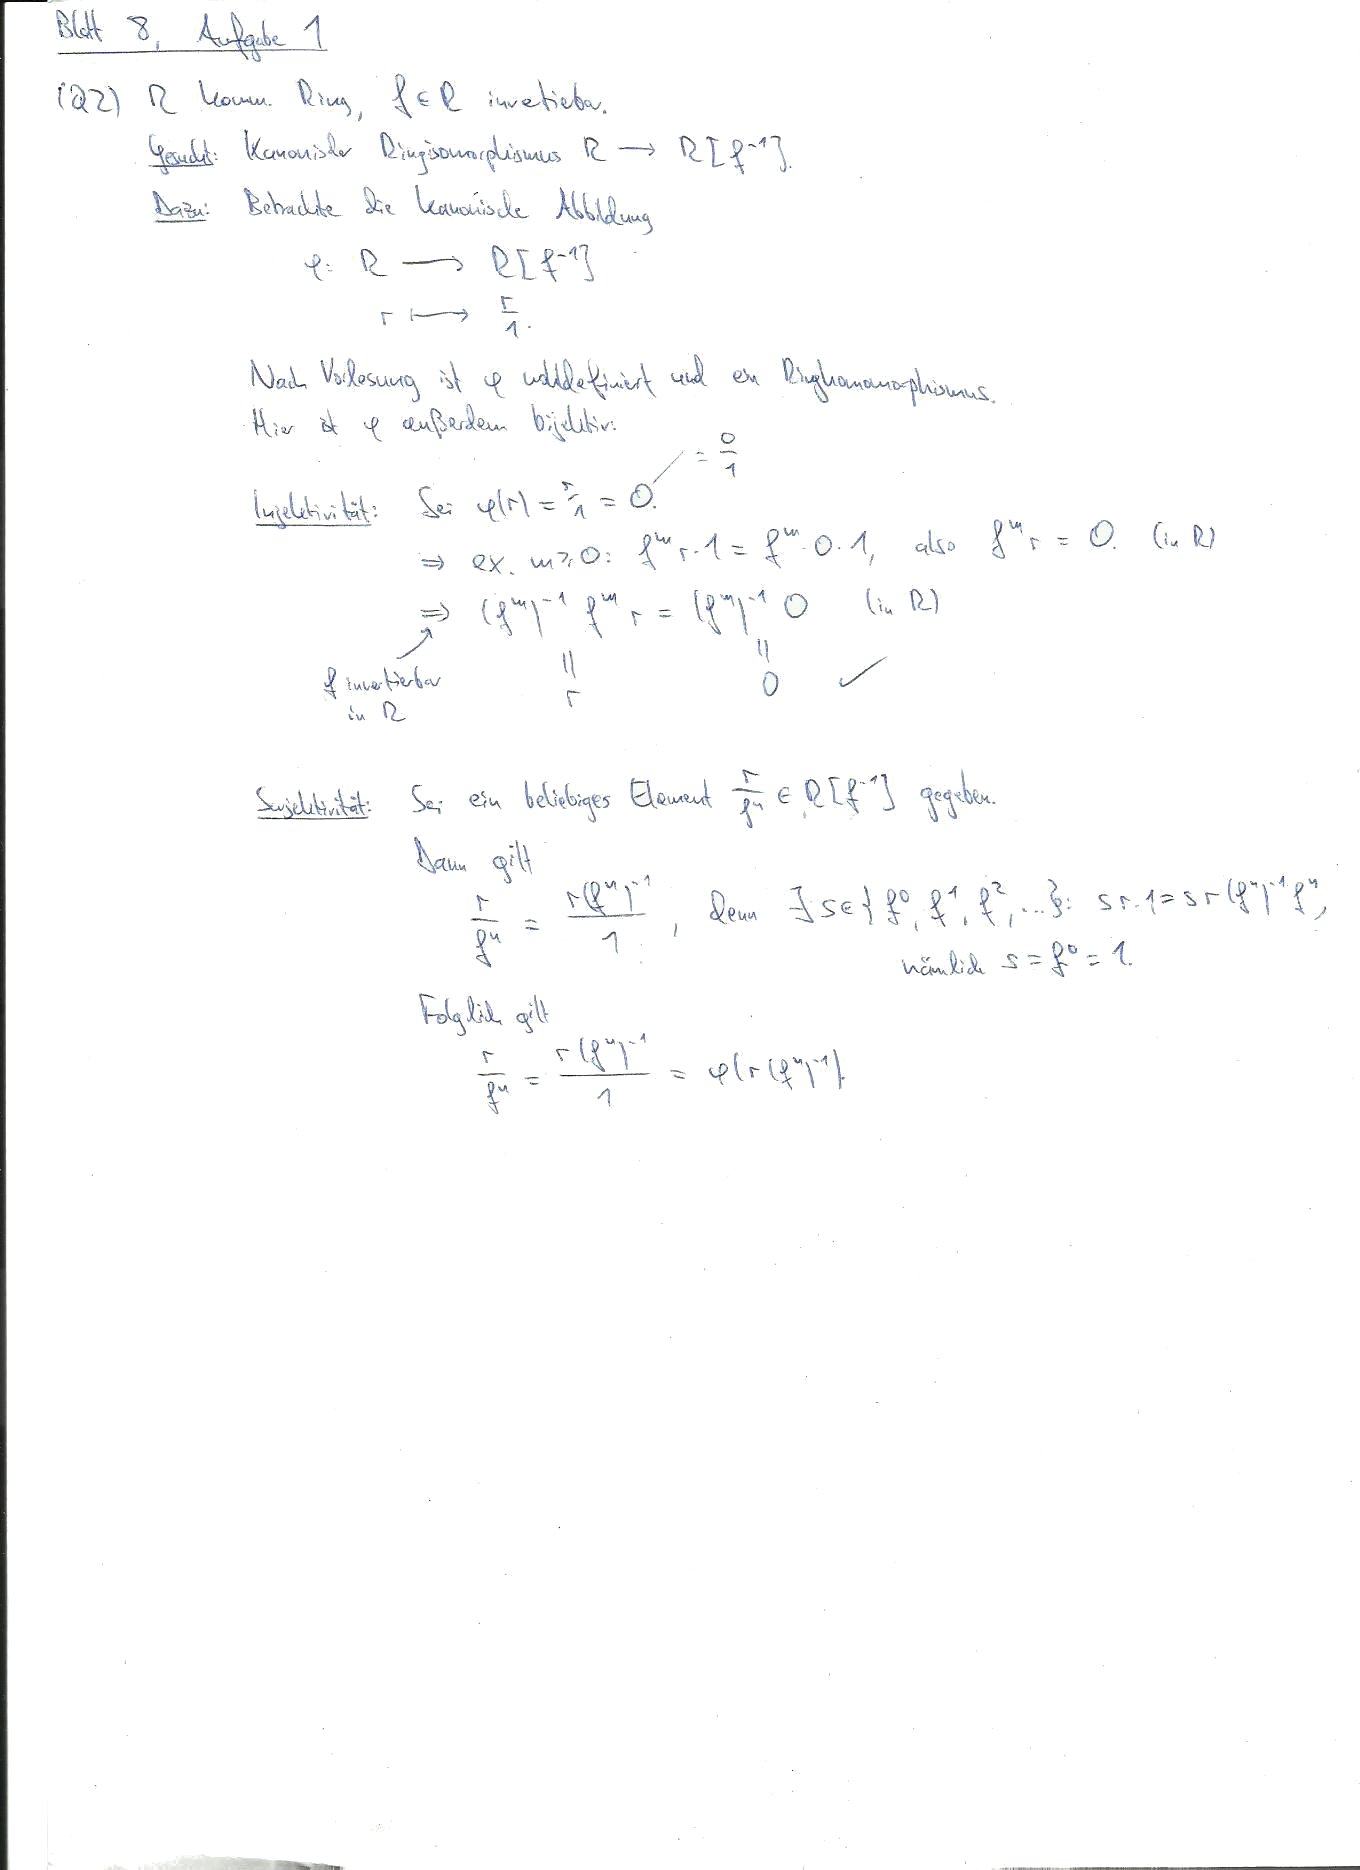 Blatt 8, Aufgabe 1
(Q2) R komm. Ring, f ∈ R invertierbar.
Gesucht: Kanonischer Ringisomorphismus R → R[f⁻¹].
Dazu: Betrachte die kanonische Abbildung
φ: R ⟶ R[f⁻¹]
r ⟼ r/1.
Nach Vorlesung ist φ wohldefiniert und ein Ringhomomorphismus.
Hier ist φ außerdem bijektiv:
= 0/1
Injektivität: Sei φ(r) = r/1 = 0.
⇒ ex. m ≥ 0: fᵐ r·1 = fᵐ·0·1, also fᵐ r = 0. (in R)
⇒ (fᵐ)⁻¹ fᵐ r = (fᵐ)⁻¹ 0 (in R)
f invertierbar
in R
= =
r 0 ✓
Surjektivität: Sei ein beliebiges Element r/fⁿ ∈ R[f⁻¹] gegeben.
Dann gilt
r/fⁿ = r(fⁿ)⁻¹/1, denn ∃ s ∈ {f⁰, f¹, f², ...}: s r·1 = s r (fⁿ)⁻¹ fⁿ,
nämlich s = f⁰ = 1.
Folglich gilt
r/fⁿ = r(fⁿ)⁻¹/1 = φ(r(fⁿ)⁻¹).